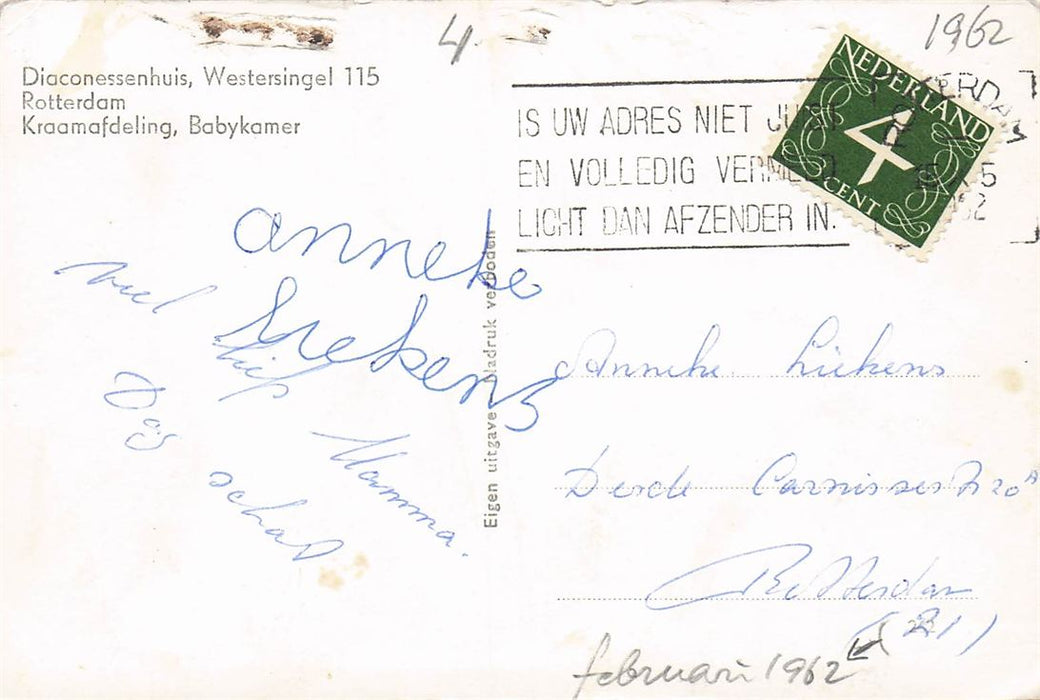 4
1962
Diaconessenhuis, Westersingel 115
Rotterdam
Kraamafdeling, Babykamer
IS UW ADRES NIET JUIST
EN VOLLEDIG VERMELD
LICHT DAN AFZENDER IN.
NEDERLAND
4
CENT
anneke
Liekens
veel liefs
Mamma.
Dag schat
Eigen uitgave Nadruk verboden
Anneke Liekens
Derde Carnissestr 20A
Rotterdam
februari 1962